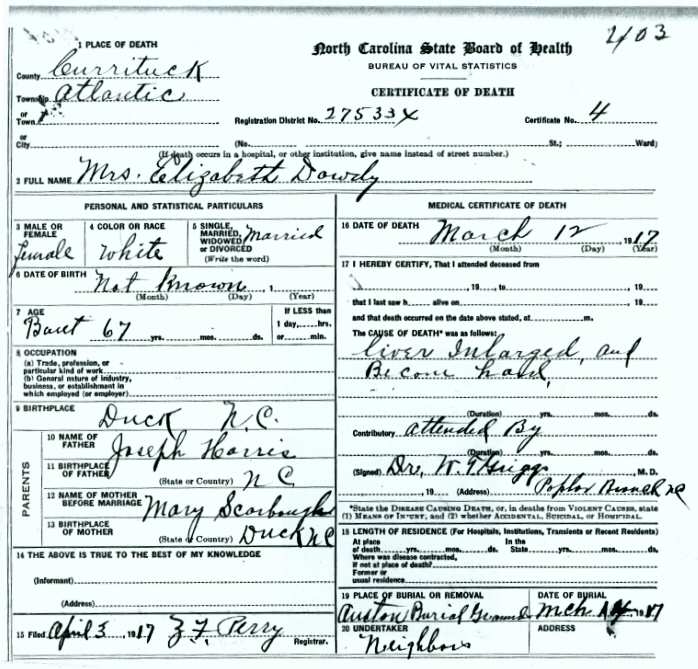 403
1 PLACE OF DEATH
County Currituck
Township Atlantic
or
Town
or
City
North Carolina State Board of Health
BUREAU OF VITAL STATISTICS
CERTIFICATE OF DEATH
Registration District No. 27533X Certificate No. 4
(No. St.; Ward)
(If death occurs in a hospital, or other institution, give name instead of street number.)
2 FULL NAME Mrs. Elizabeth Dowdy
PERSONAL AND STATISTICAL PARTICULARS
3 MALE OR FEMALE
Female
4 COLOR OR RACE
White
5 SINGLE, MARRIED, WIDOWED or DIVORCED
(Write the word)
Married
6 DATE OF BIRTH Not Known, 1
(Month) (Day) (Year)
7 AGE
Bout 67 yrs. mos. ds.
If LESS than
1 day, hrs.
or min.
8 OCCUPATION
(a) Trade, profession, or
particular kind of work
(b) General nature of industry,
business, or establishment in
which employed (or employer)
9 BIRTHPLACE
Duck N.C.
PARENTS
10 NAME OF FATHER Joseph Harris
11 BIRTHPLACE OF FATHER
(State or Country) N C
12 NAME OF MOTHER BEFORE MARRIAGE Mary Scarborough
13 BIRTHPLACE OF MOTHER
(State or Country) Duck N C
14 THE ABOVE IS TRUE TO THE BEST OF MY KNOWLEDGE
(Informant)
(Address)
15 Filed April 3, 1917 Z. T. Perry
Registrar.
MEDICAL CERTIFICATE OF DEATH
16 DATE OF DEATH March 12 1917
(Month) (Day) (Year)
17 I HEREBY CERTIFY, That I attended deceased from
, 19 , to , 19
that I last saw h alive on , 19
and that death occurred on the date above stated, at m.
The CAUSE OF DEATH* was as follows:
liver Inlarged, and
Become hard,
(Duration) yrs. mos. ds.
Contributory attended By
(Duration) yrs. mos. ds.
(Signed) Dr. W. T. Griggs, M. D.
, 19 (Address) Poplar Branch NC
*State the DISEASE CAUSING DEATH, or, in deaths from VIOLENT CAUSES, state
(1) MEANS OF INJURY, and (2) whether ACCIDENTAL, SUICIDAL, or HOMICIDAL.
18 LENGTH OF RESIDENCE (For Hospitals, Institutions, Transients or Recent Residents)
At place of death yrs. mos. ds. In the State yrs. mos. ds.
Where was disease contracted,
if not at place of death?
Former or
usual residence
19 PLACE OF BURIAL OR REMOVAL
Auston Burial Ground
DATE OF BURIAL
Mch 14 1917
20 UNDERTAKER
Neighbors
ADDRESS